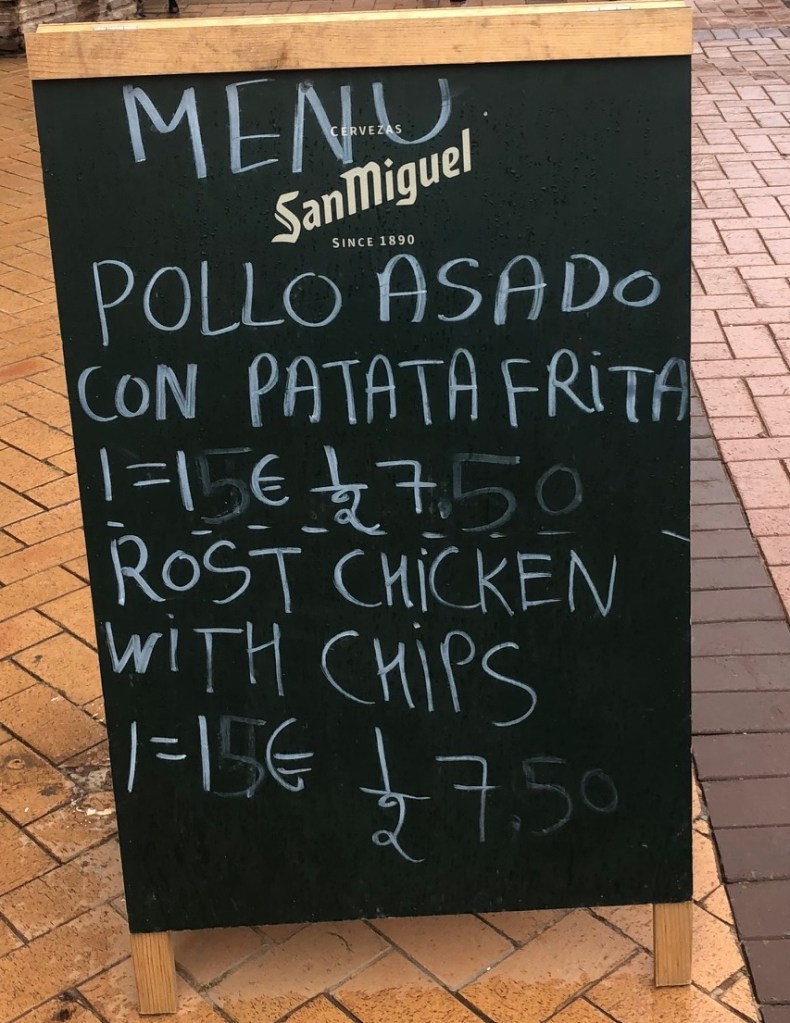 MENU
CERVEZAS
SanMiguel
SINCE 1890
POLLO ASADO
CON PATATA FRiTA
1=15€ 1/2 7.50
ROST CHiCKEN
WiTH CHiPS
1=15€ 1/2 7.50